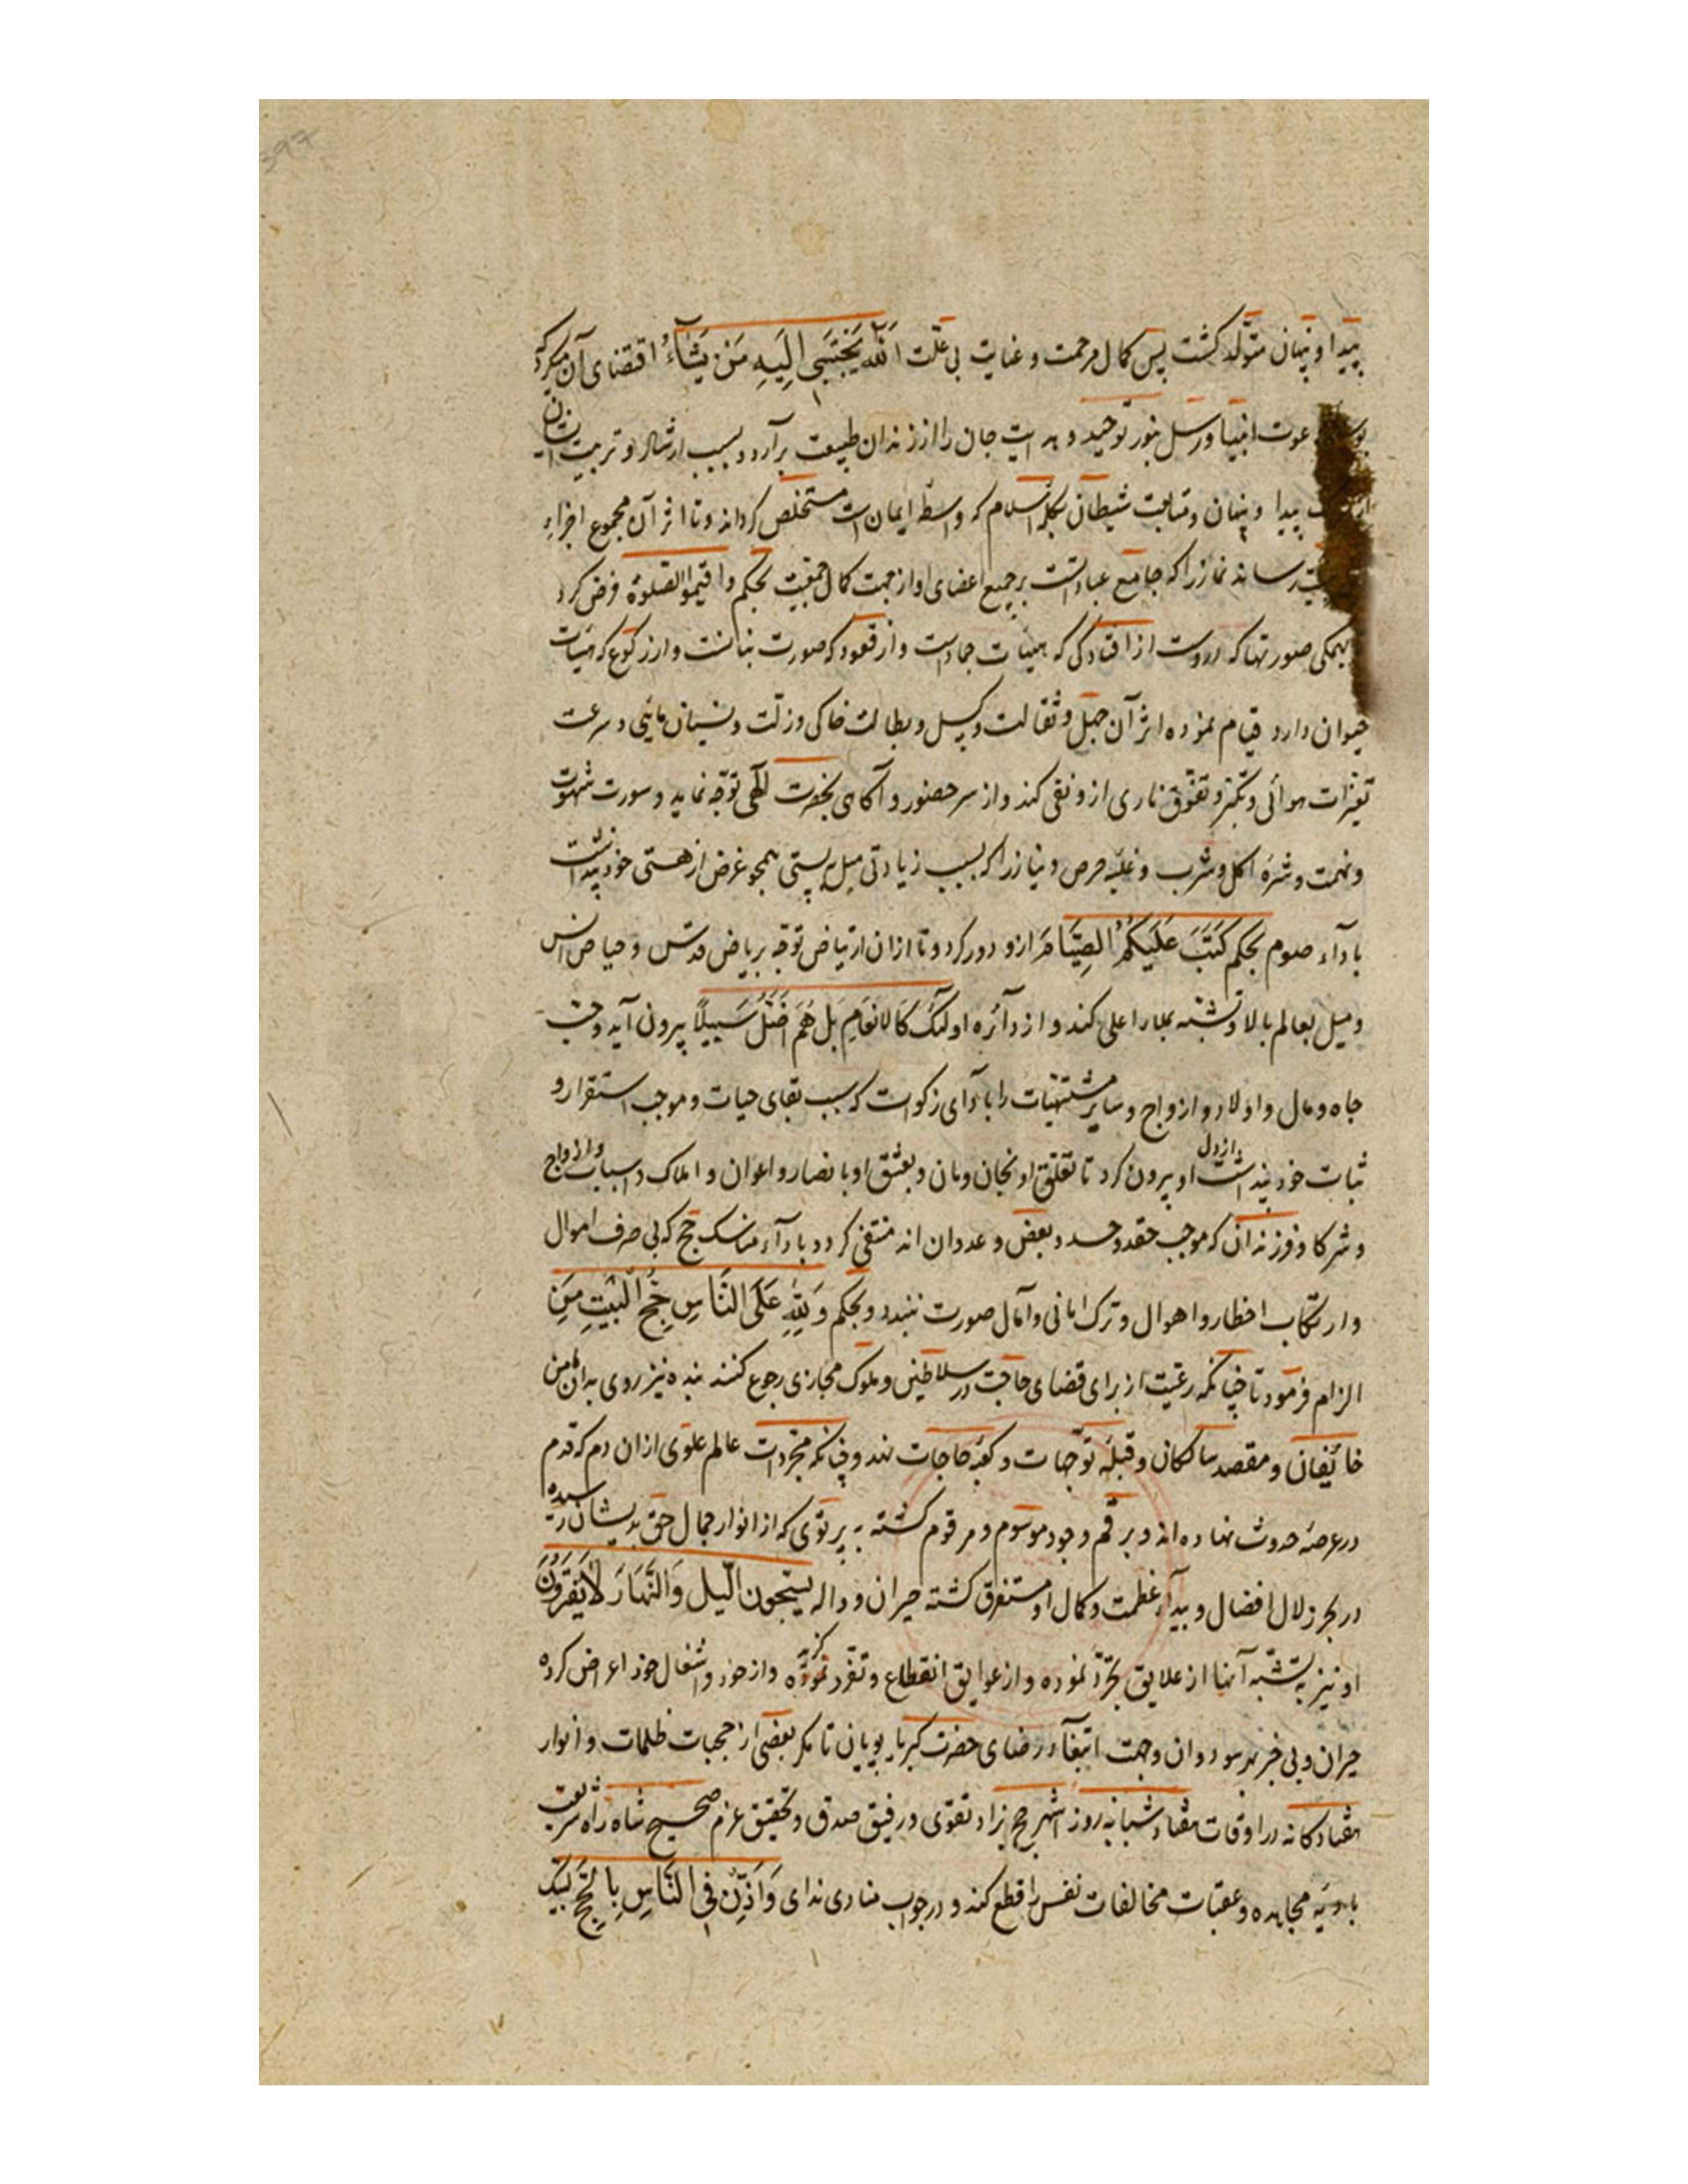 پیدا و پنهان متولد کشت پس کمال مرحمت و عنایت بی علت اَللّٰه یَجْتَبِی اِلَیهِ مَنْ یَشَآءُ اقتضای آن میکرد که
دعوت انبیا و رسل بنور توحید و هدایت جان را از زندان طبیعت برآرد و بسبب ارشاد و تربیت ایشان
پیدا و پنهان و متابعت شیطان بکلمه اسلام که واسطه ایمان است مستخلص کرداند و تا اثر آن بمجموع اجزای
رساند نماز را که جامع عباداتست بر جمیع اعضای او از جهت کمال جمعیت بحکم و اقیموا الصلوة فرض کرد
بهمکی صورتها که دروست از افتادکی که هیئات جمادست و از قعود که صورت نباتست و از رکوع که هیئات
حیوان دارد قیام نموده اثر آن جهل و ثقالت و کسل و بطالت خاکی و زلت و نسیان مایی و سرعت
تغیرات هوائی و تکبر و تفوق ناری ازو نفی کند و از سر حضور و آکاهی بحضرت الهی توجه نماید و سورت شهوت
و نهمت و شره اکل و شرب و غلبه حرص و نیاز را که بسبب زیادتی میل به پستی همجو غرض از هستی خود پنداشت
با دآء صوم بحکم کُتِبَ عَلَیکُمُ الصِیَامَ ازو دور کرد و تا ازان ارتیاض توجه بریاض قدس و حیاض انس
و میل بعالم بالا و تشبه بملاء اعلی کند و از دآئره اولئک کَالانعَامِ بَل هُمْ اَضَلُّ سَبیلًا بیرون آید و حب
جاه و مال و اولاد و ازواج و سایر مشتهیات را با دآی زکوات که سبب بقای حیات و موجب استقرار و
ثبات خود پنداشت از دل او بیرون کرد تا تعلق او بخان و مان و تعشق او با نصار و اعوان و املاک و اسباب و ازواج
و شرکا و فرزندان که موجب حقد و حسد و بغض و عدوان اند منتفی کردد و با دآء مناسک حج که بی صرف اموال
و ارتکاب اخطار و اهوال و ترک امانی و آمال صورت نبندد و بحکم وَ لِلّٰهِ عَلَی النَّاسِ حِجُّ الْبَیْتِ مَنِ
الزام فرمود تا چنانکه رعیت از برای قضای حاجت در سلاطین و ملوک مجازی رجوع کنند بنده نیز روی بدان مامن
خائفان و مقصد سالکان و قبله توجهات و کعبه حاجات نهد و چنانکه مجردات عالم علوی ازان دم که قدم
در عرصه حدوث نهاده اند و برقم وجود موسوم و مرقوم کشته به پرتوی که از انوار جمال حق بدیشان رسیده
در بحر زلال افضال و بیدآء عظمت و کمال او مستغرق کشته حیران و واله یسبحون اللّیل وَالنَّهَارَ لَا یَفْتُرُونَ
او نیز به تشبه آنها از علایق تجرد نموده و از عوایق انقطاع و تفرد کزیده و از خود و اشغال خود اعراض کرده
حیران و بی خبر هر سو دوان و جهت ابتغآء رضای حضرت کبریا پویان تا مکر بعضی از حجبات ظلمات و انوار
هفتادکانه در اوقات هفتاد شبانه روز اشهر حج بزاد تقوی و رفیق صدق و تحقیق عزم صحیح شاه راه شریعت
بادیه مجاهده و عقبات مخالفات نفس را قطع کند و در جواب منادی ندای وَ اَذِّنْ فِی النَّاسِ بِالحَجِّ لبیک